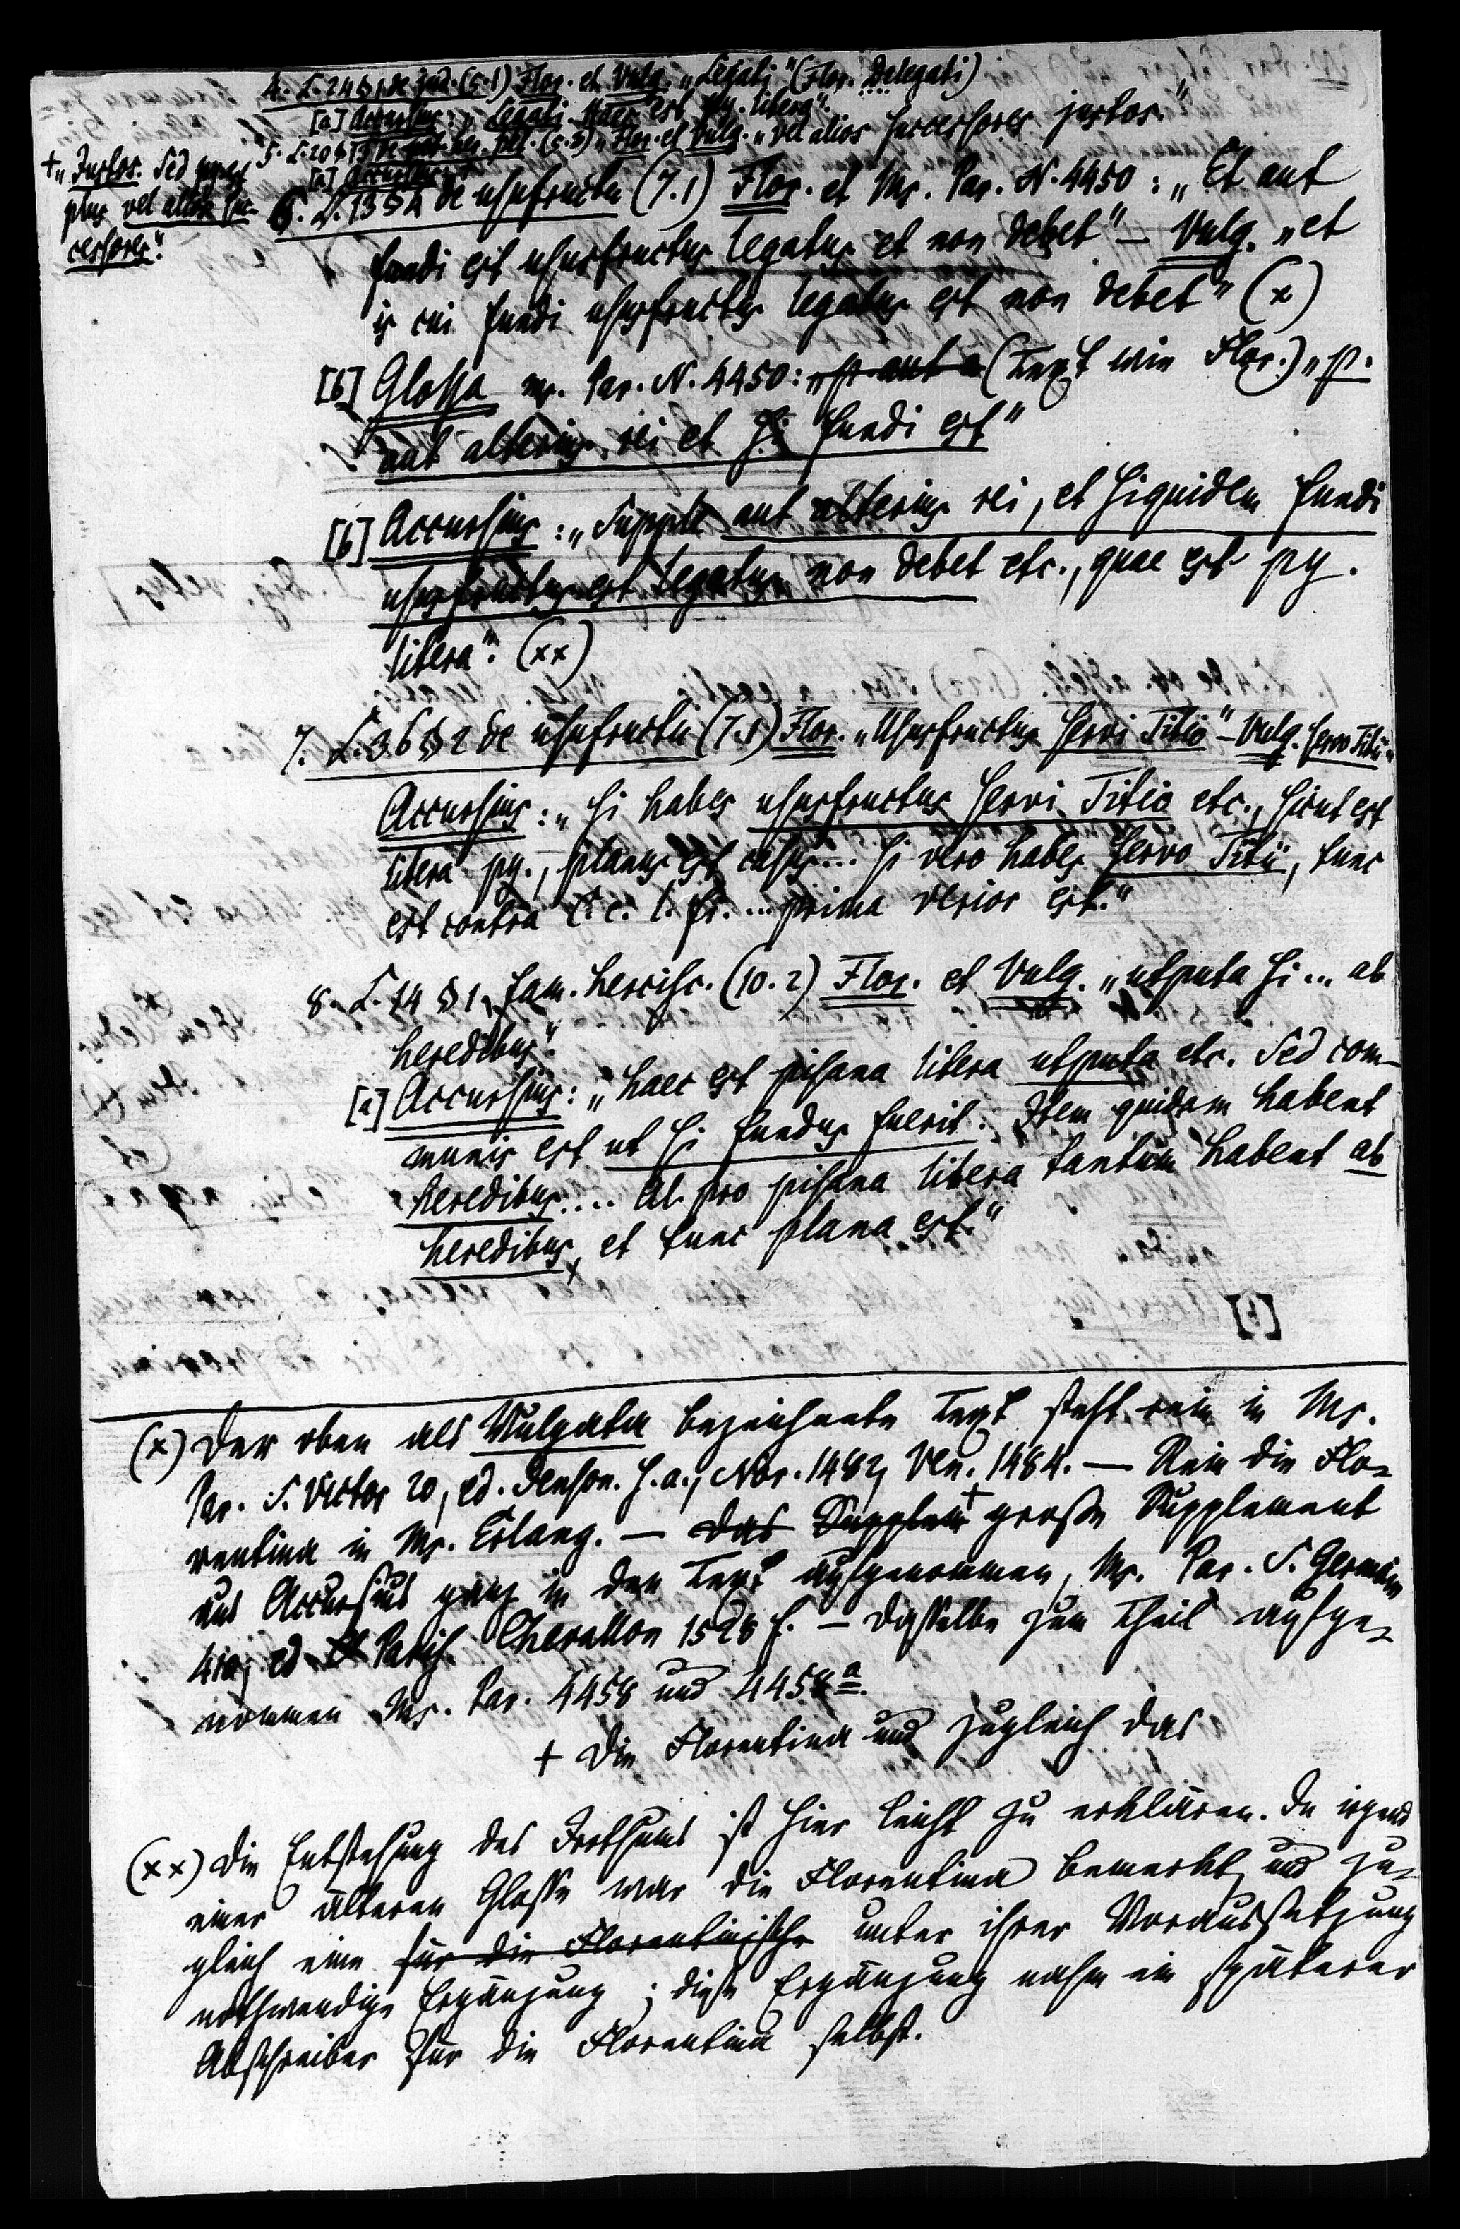 4. L. 24 § 1 de jud. (5.1) Flor. et Vulg. „Legati“ (Flor. Delegati)
[a] Accursius: „Legati. Haec est py. litera“.
5. L. 20 § 13 de her. pet. (5.3) „Flor. et Vulg. „vel alios successores justos.“
[a] Accursius: +
+ „Justos. Sed
plus vel alios suc-
cessores“.
6. L. 13 § 2 de usufructu (7.1) Flor. et Ms. Par. N. 4450: „Et aut
fundi est ususfructus legatus et non debet“ – Vulg. „et
is cui fundi ususfructus legatus est non debet“ (x)
[b] Glossa ms. Par. N. 4450: „p. aut a (Text wie Flor.) „p.
aut alterius rei et si fundi est“
[b] Accursius: „Supple aut alterius rei, et siquidem fundi
ususfructus est legatus non debet etc., quae est py.
litera“. (xx)
7. L. 36 § 2 de usufructu (7.1) Flor. „Ususfructus servi Titio“ – Vulg. servo Titii“
Accursius: „Si habes ususfructus servi Titio etc., sicut est
litera py., planus est casus ... Si vero habes servo Titii, tunc
est contra l. e. l. pr. ... prima verior est.“
8. L. 14 § 1 fam. hercisc. (10.2) Flor. et Vulg. „utputa si ... ab
heredibus“.
[a] Accursius: „haec est pisana litera utputa etc. Sed com-
munis est ut si fundus fuerit. Item quidam habent
heredibus .... Al. pro pisana litera tantum habent ab
heredibus, et tunc plana est.“
(x) Der oben als Vulgata bezeichnete Text steht rein in Ms.
Par. S. Victor 20, ed. Jenson. s. a., Nor. 1482, Ven. 1484. — Rein die Flo-
rentina in Ms. Erlang. — das Supplem + große Supplement
aus Accursius ganz in den Text aufgenommen, Ms. Par. S. Germain
ed. Paris. Chevallon 1528 f. – dasselbe zum Theil aufge-
nommen Ms. Par. 4458 und 4458 a.
+ die Florentina und zugleich das
(xx) Die Entstehung des Irrthums ist hier leicht zu erklären. In irgend
einer älteren Glosse war die Florentina bemerkt, und zu-
gleich eine für die Florentinische unter ihrer Voraussetzung
nothwendige Ergänzung; diese Ergänzung nahm ein späterer
Abschreiber für die Florentina selbst.